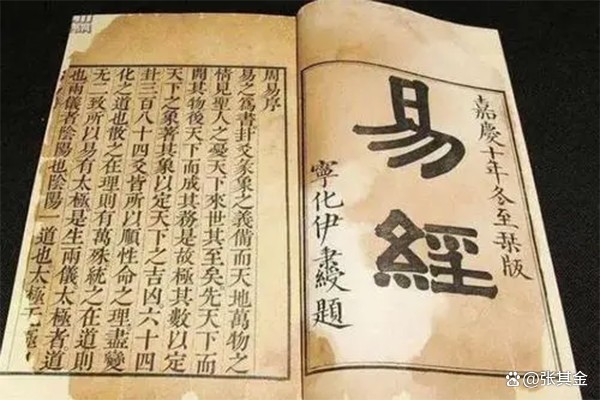 嘉慶十年冬至栞版
易經
寧化伊秉綬題
周易序
易之爲書卦爻彖象之義備而天地萬物之
情見聖人之憂天下來世其至矣先天下而
開其物後天下而成其務是故極其數以定
天下之象著其象以定天下之吉凶六十四
卦三百八十四爻皆所以順性命之理盡變
化之道也散之在理則有萬殊統之在道則
无二致所以易有太極是生兩儀太極者道
也兩儀者陰陽也陰陽一道也太極无極
@张其金